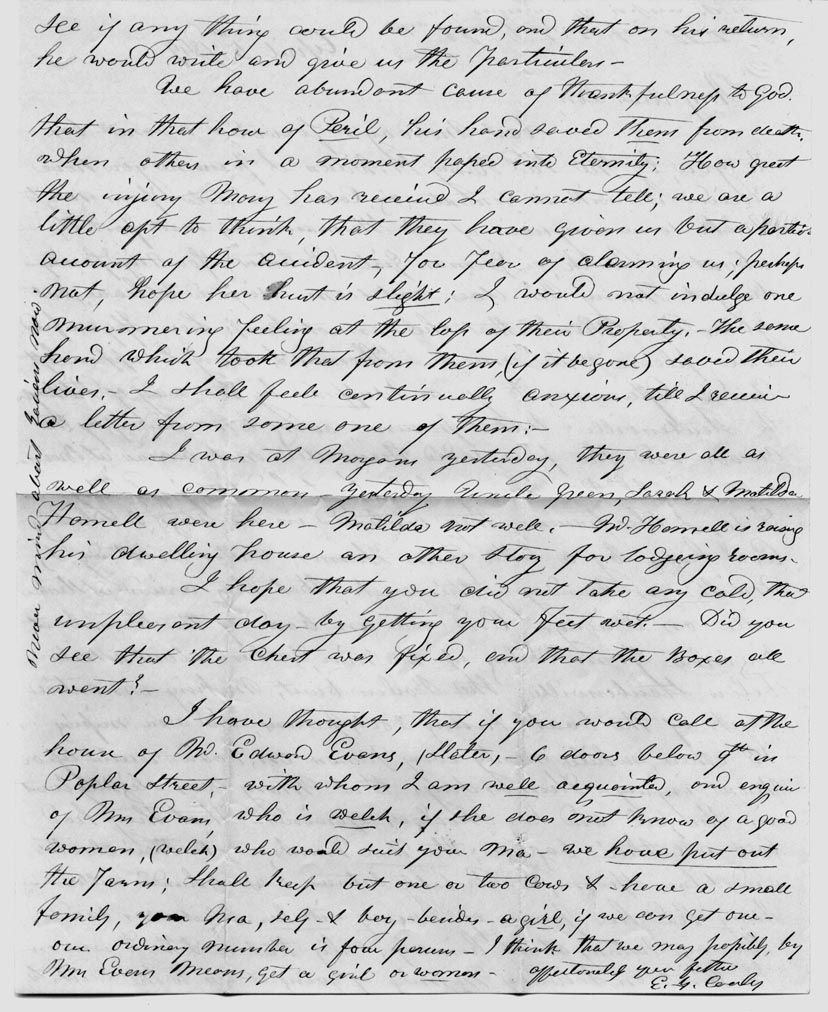 see if any thing could be found, and that on his return,
he would write and give us the Particulers –
We have abundant cause of thankfulness to God.
that in that hour of Peril, his hand saved them from death,
when others in a moment passed into Eternity; How great
the injury Mary has received I cannot tell; we are a
little apt to think, that they have given us but a partial
account of the accident, for Fear of alarming us; perhaps
not, hope her hurt is slight; I would not indulge one
murmering feeling at the loss of their Property. – The same
hand which took that from them, (if it be gone) saved their
lives. – I shall feele continually anxious, till I receive
a letter from some one of them: –
I was at Morgans yesterday, they were all as
well as common – yesterday Uncle Green, Sarah & Matilda
Hamell were here – Matilda not well. – Mr. Hamell is raising
his dwelling house an other story for lodgeing rooms –
I hope that you did not take any cold, that
unpleasant day – by getting your feet wet. – Did you
see that the Chest was fixed, and that the Boxes all
went? –
I have thought, that if you would call at the
house of Mr. Edward Evans, (Slater, – 6 doors below 9th in
Poplar Street, – with whom I am well acquainted, and enquire
of Mrs Evans, who is welch, if she does not know of a good
women, (welch) who would suit your Ma – we have put out
the Farm; shall keep but one or two Cows & have a small
family, your Ma, self & boy – besides – a girl, if we can get one –
our ordinary number is four persons – I think that we may possibly, by
Mrs Evans Means, get a girl or women – affectionately your father
E. G.
mind about now.